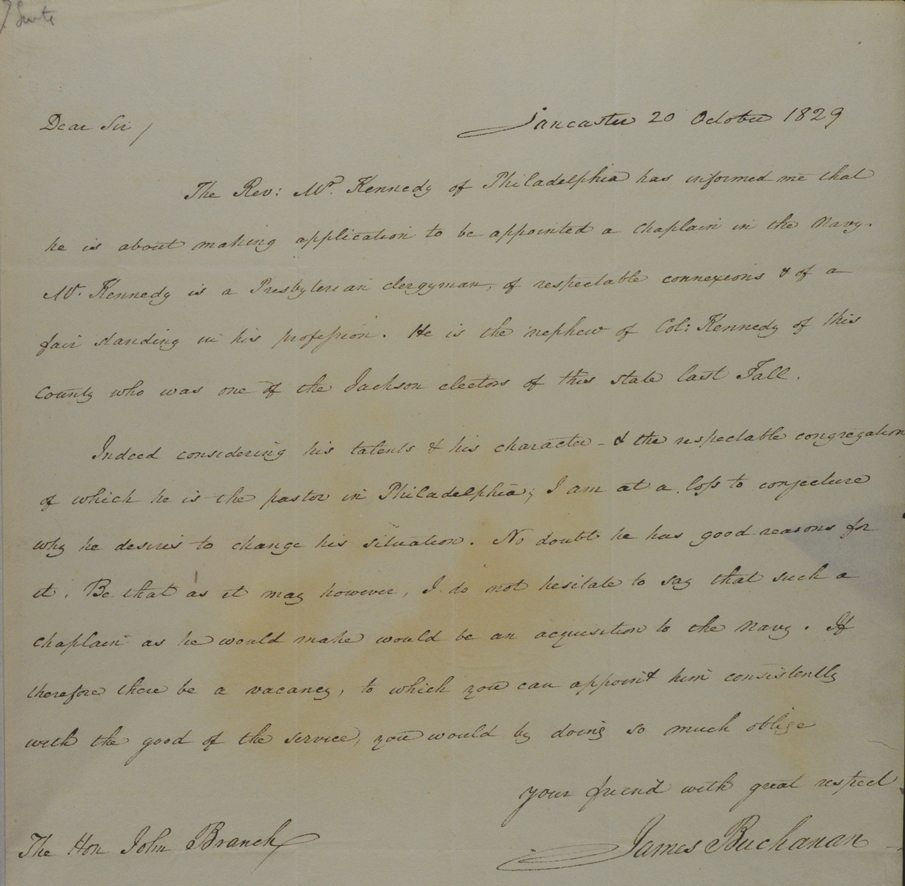 Dear Sir/
Lancaster 20 October 1829
The Rev: Mr. Kennedy of Philadelphia has informed me that
he is about making application to be appointed a chaplain in the Navy.
Mr. Kennedy is a Presbyterian clergyman, of respectable connexions & of a
fair standing in his profession. He is the nephew of Col: Kennedy of this
County who was one of the Jackson electors of this state last Fall.
Indeed considering his talents & his character – & the respectable congregation
of which he is the pastor in Philadelphia; I am at a loss to conjecture
why he desires to change his situation. No doubt he has good reasons for
it. Be that as it may however, I do not hesitate to say that such a
Chaplain as he would make would be an acquisition to the Navy. If
therefore there be a vacancy, to which you can appoint him consistently
with the good of the service, you would by doing so much oblige
your friend with great respect
The Hon John Branch
James Buchanan